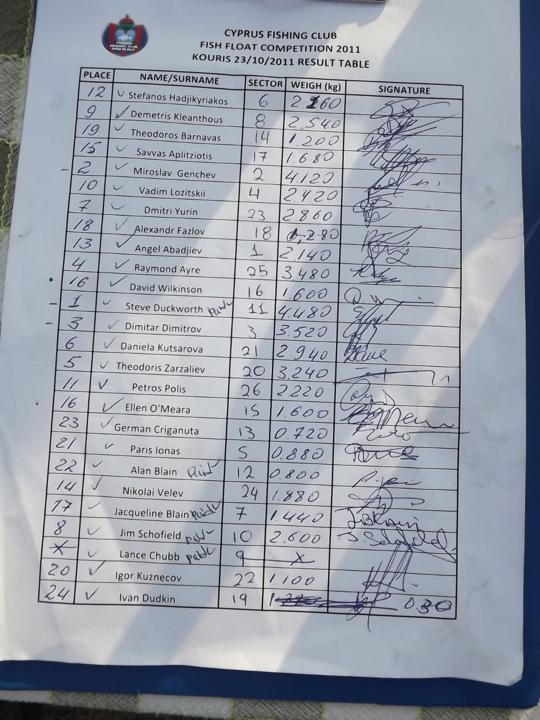 CYPRUS FISHING CLUB
FISH FLOAT COMPETITION 2011
KOURIS 23/10/2011 RESULT TABLE
PLACE NAME/SURNAME SECTOR WEIGH (kg) SIGNATURE
12 ✓ Stefanos Hadjikyriakos 6 2.160
9 ✓ Demetris Kleanthous 8 2.540
19 ✓ Theodoros Barnavas 14 1.200
15 ✓ Savvas Aplitziotis 17 1.680
- 2 ✓ Miroslav Genchev 2 4.120
10 ✓ Vadim Lozitskii 4 2.420
7 ✓ Dmitri Yurin 23 2.860
18 ✓ Alexandr Fazlov 18 1.280
13 ✓ Angel Abadjiev 1 2.140
4 ✓ Raymond Ayre 25 3.480
16 ✓ David Wilkinson 16 1.600
- 1 ✓ Steve Duckworth 11 4.480
- 3 ✓ Dimitar Dimitrov 3 3.520
6 ✓ Daniela Kutsarova 21 2.940
5 ✓ Theodoris Zarzaliev 20 3.240
11 ✓ Petros Polis 26 2.220
16 ✓ Ellen O'Meara 15 1.600
23 ✓ German Criganuta 13 0.720
21 ✓ Paris Ionas 5 0.880
22 ✓ Alan Blain 12 0.800
14 ✓ Nikolai Velev 24 1.880
17 ✓ Jacqueline Blain 7 1.440 J.Blain
8 ✓ Jim Schofield 10 2.600 J Schofield
X ✓ Lance Chubb 9 X
20 ✓ Igor Kuznecov 22 1.100
24 ✓ Ivan Dudkin 19